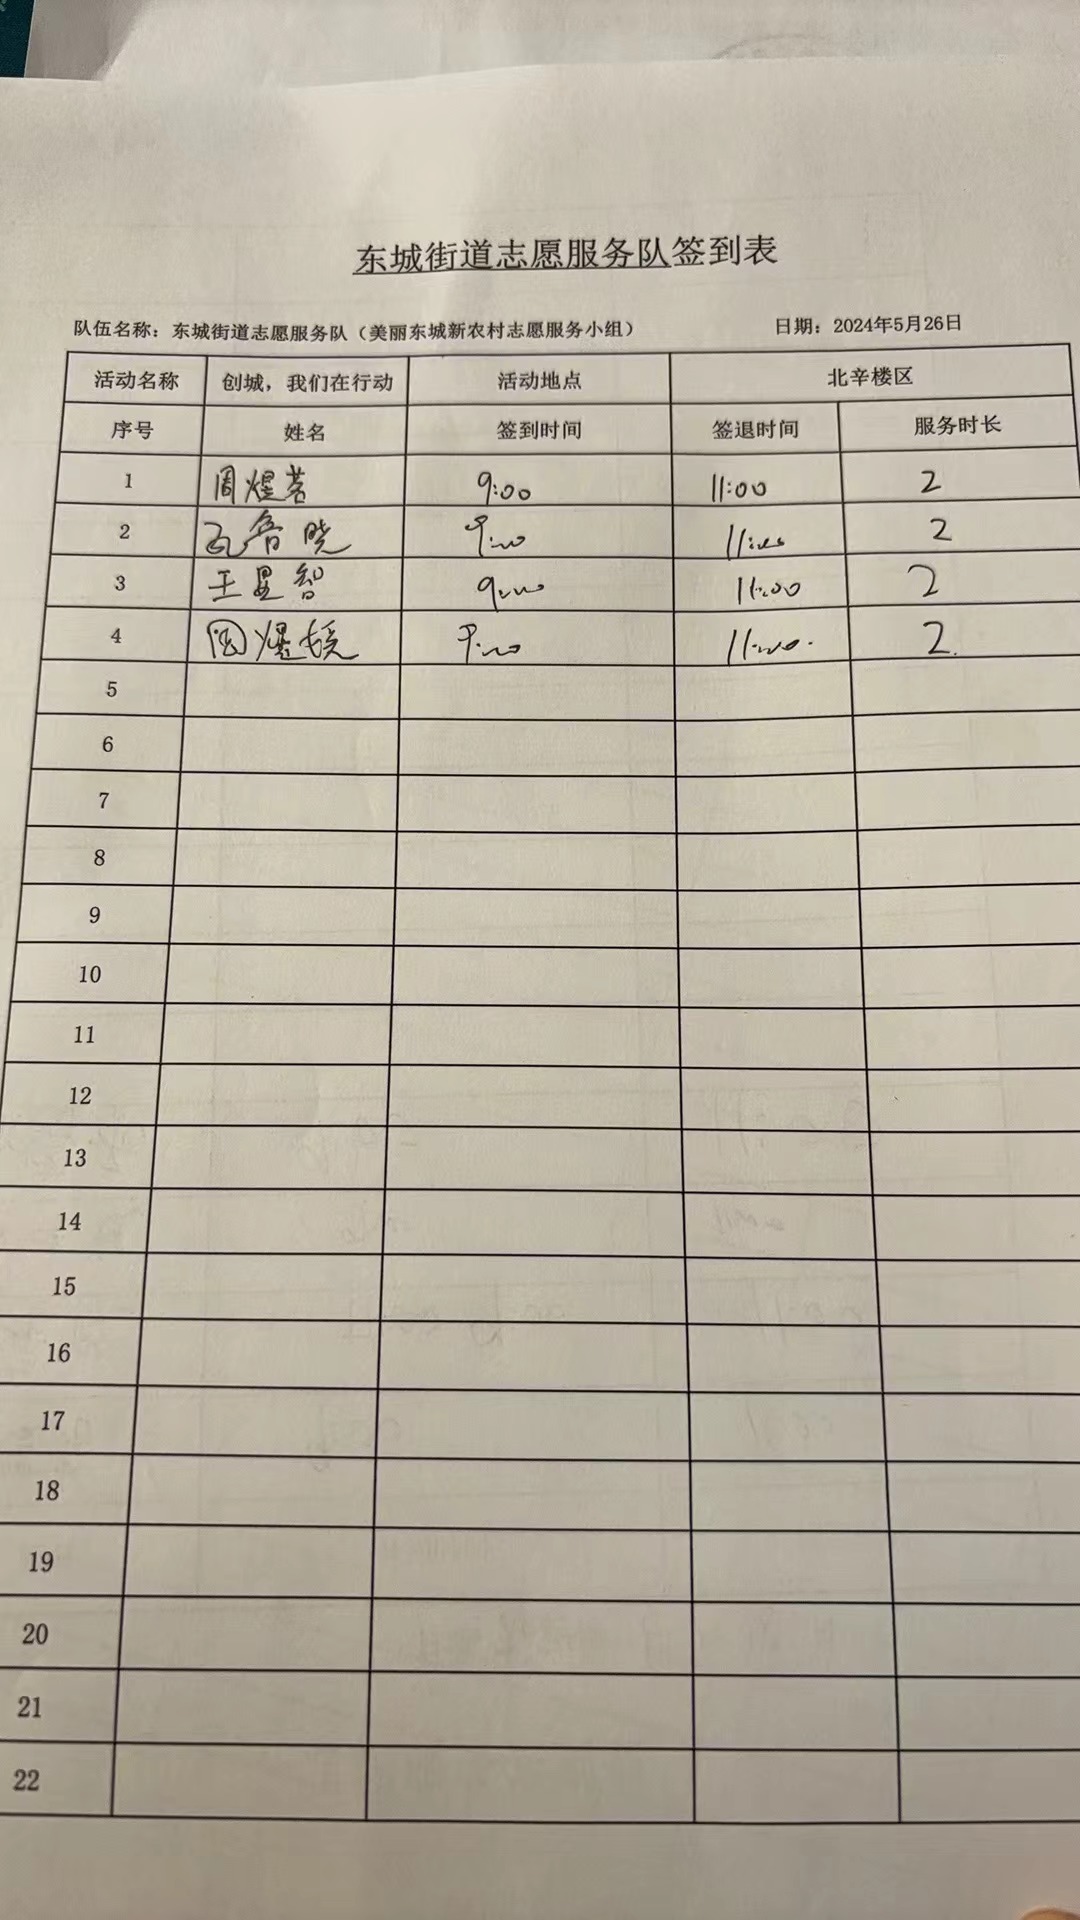 东城街道志愿服务队签到表
队伍名称：东城街道志愿服务队（美丽东城新农村志愿服务小组） 日期：2024年5月26日
活动名称 创城，我们在行动 活动地点 北辛楼区
序号 姓名 签到时间 签退时间 服务时长
1 周煜茗 9:00 11:00 2
2 孔鲁晓 9:00 11:00 2
3 王昱智 9:00 11:00 2
4 9:00 11:00 2
5
6
7
8
9
10
11
12
13
14
15
16
17
18
19
20
21
22